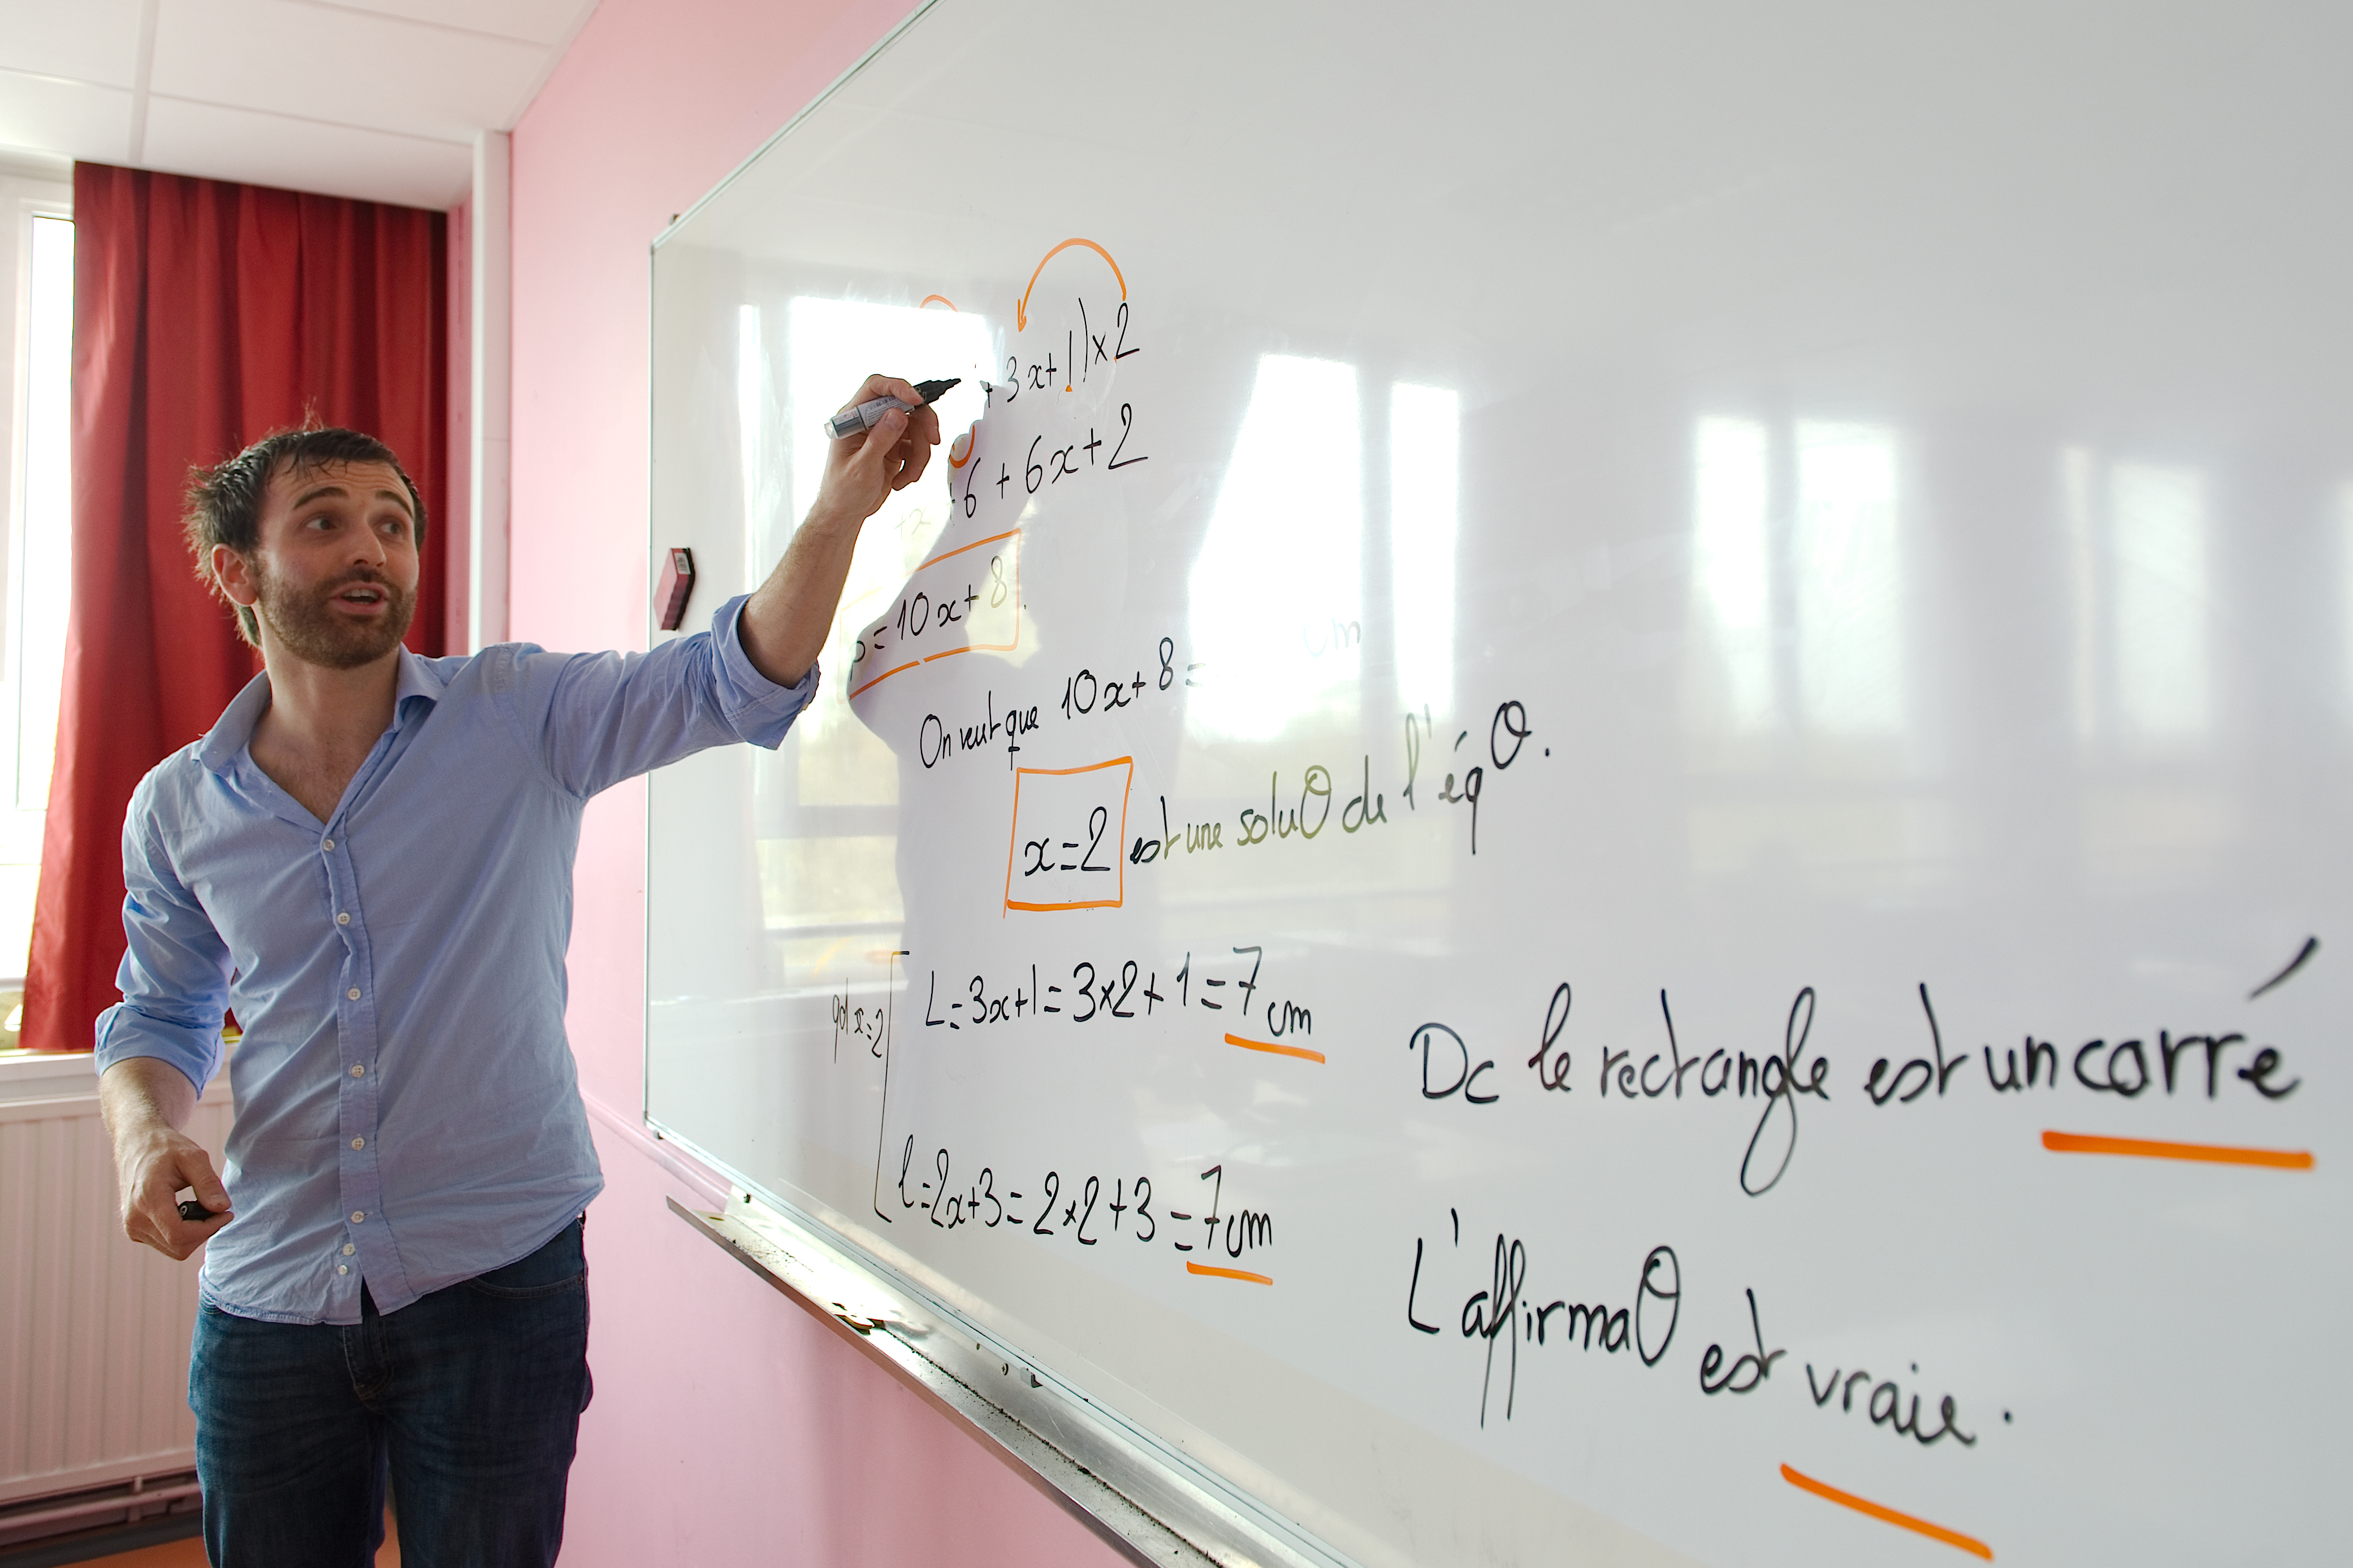 + 3x+1) × 2
+6 + 6x+2
p=10x+8
On veut que 10x+8 = cm
x=2 est une soluθ de l'éqθ.
qd x=2
L=3x+1=3×2+1=7cm
l=2x+3=2×2+3=7cm
Dc le rectangle est un carré
L'affirmaθ est vraie.